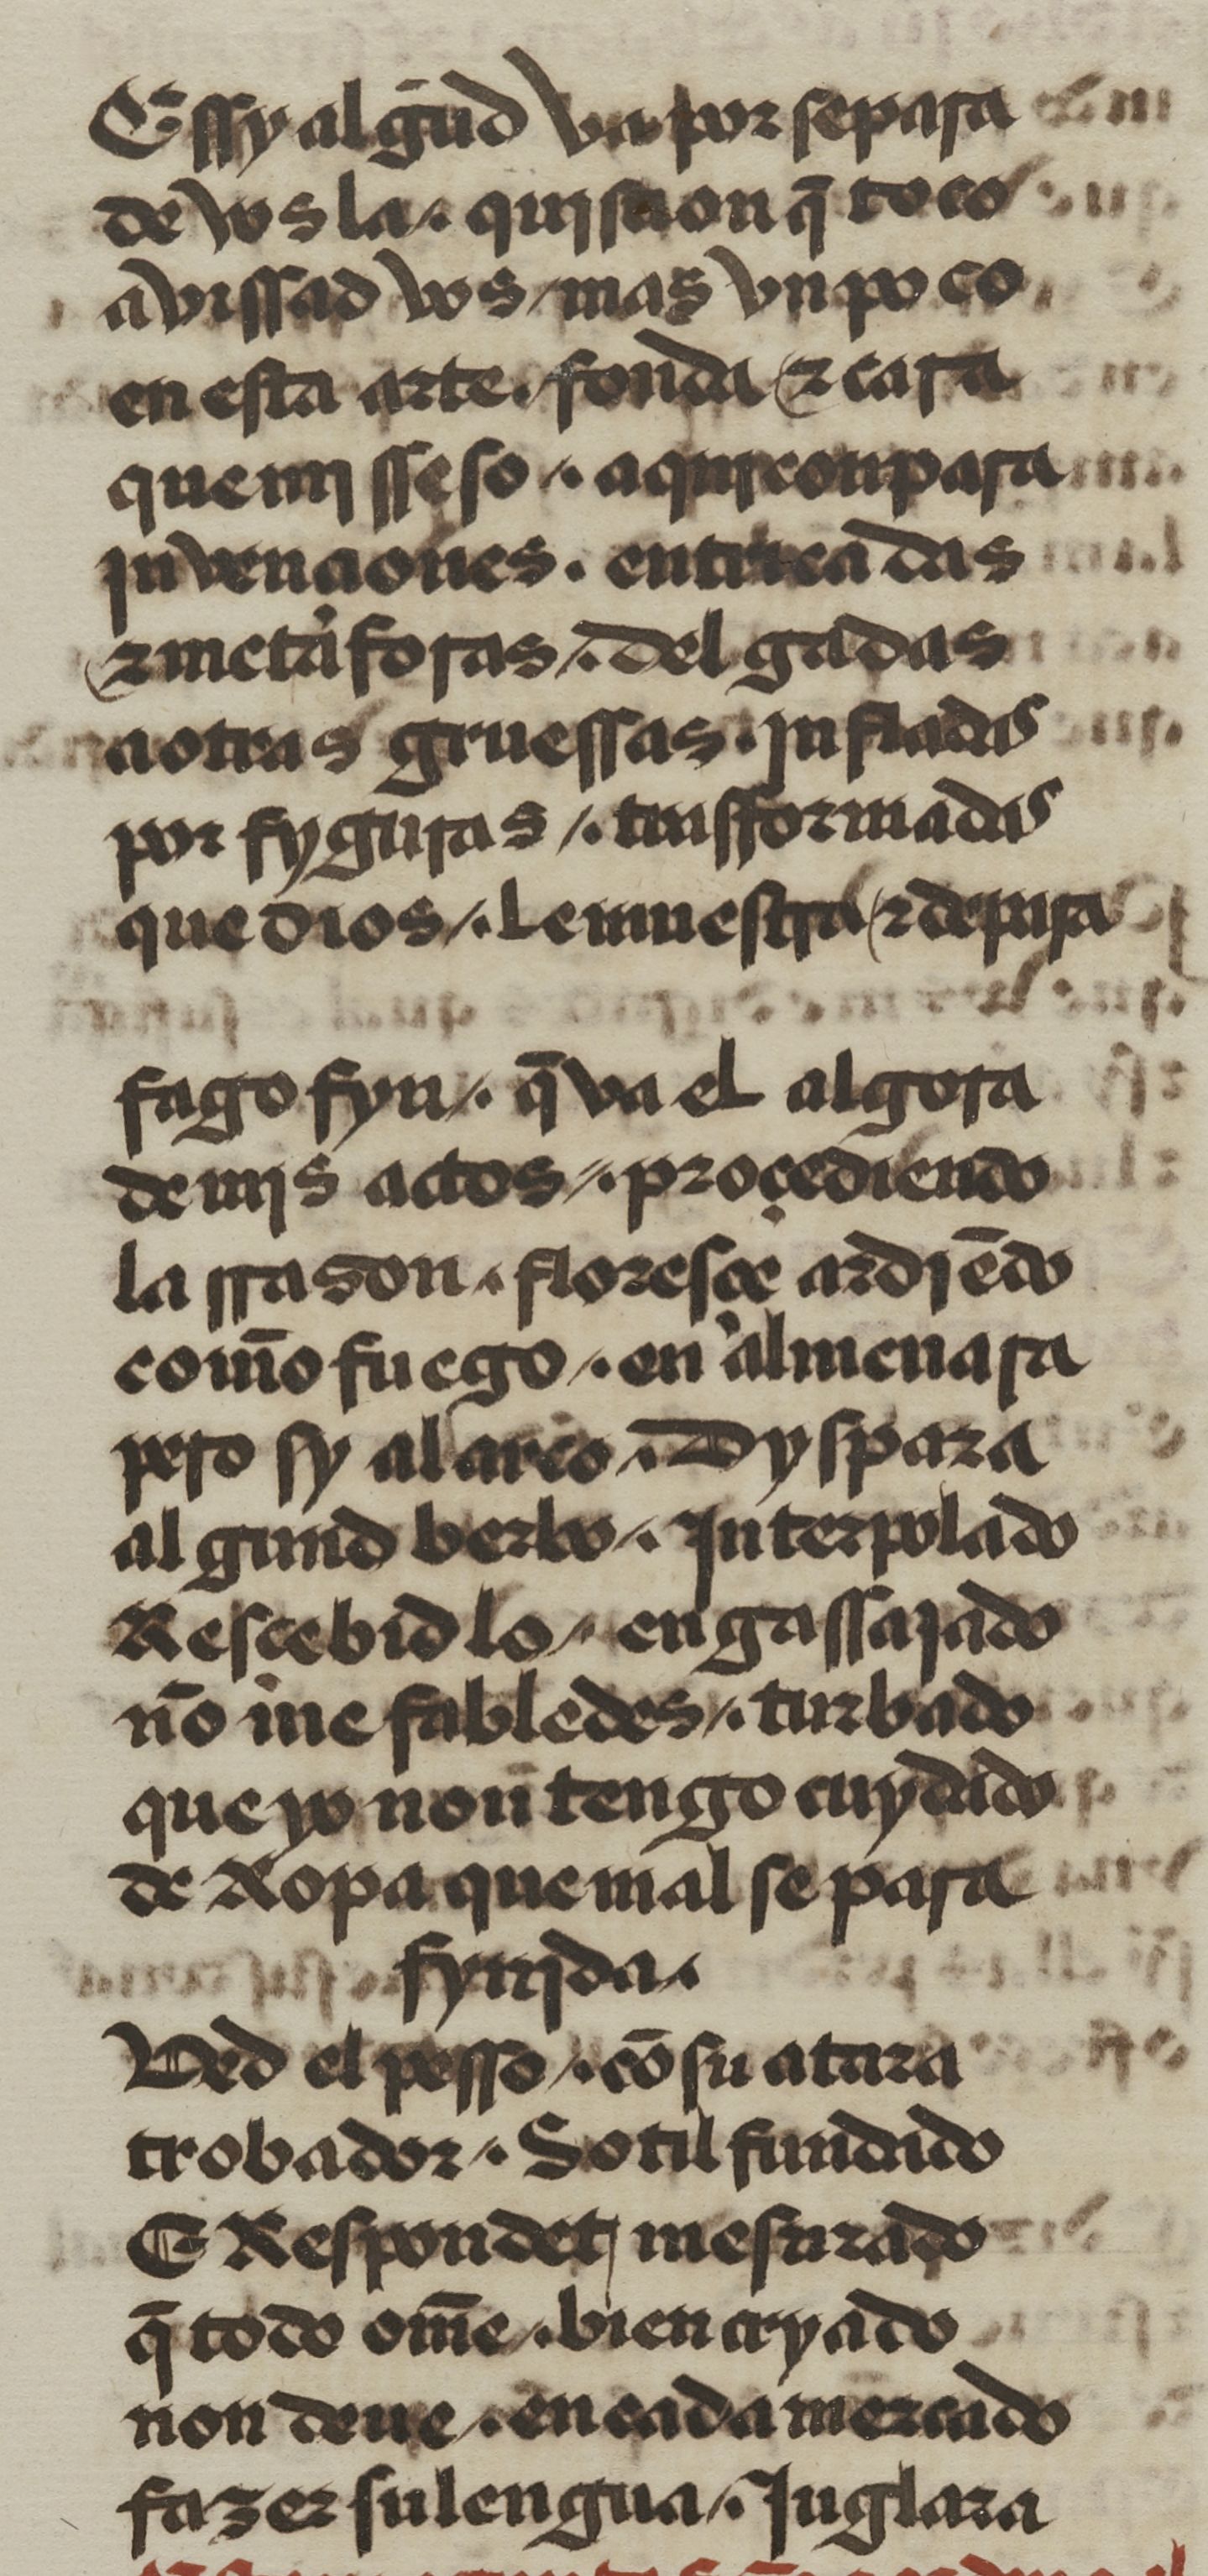 E ssy algũd va por sepaɾa
de vos la /. quistion q̃ toco
avissad vos / mas vn poco
en esta arte ./ fonda & caɾa
que mj sseso /. aqui conpaɾa
jnvenciones . entricadas
& metáfoɾas /. delgadas
a otras gruessas . jnfladas
por fyguɾas /. trasformadas
que dios /. le muestɾa & depaɾa
fago fyn /. q̃ va el algoɾa
de mjs actos /. proçediendo
la ssason /. floresce ardiẽdo
com̃o fuego /. en almenaɾa
peɾo sy al arco /. Dyspara
algund berbo /. Interpolado
Rescebid lo / engassajado
nõ me fabledes /. turbado
que yo noñ tengo cuydado
de Ropa que mal se paɾa
fynjda /.
Ved el pesso /. cõ su atara
trobador /. Sotil fundado
E Respondet mesurado
q̃ todo om̃e /. bien cryado
non deue /. en cada mercado
fazer su lengua /. Juglara